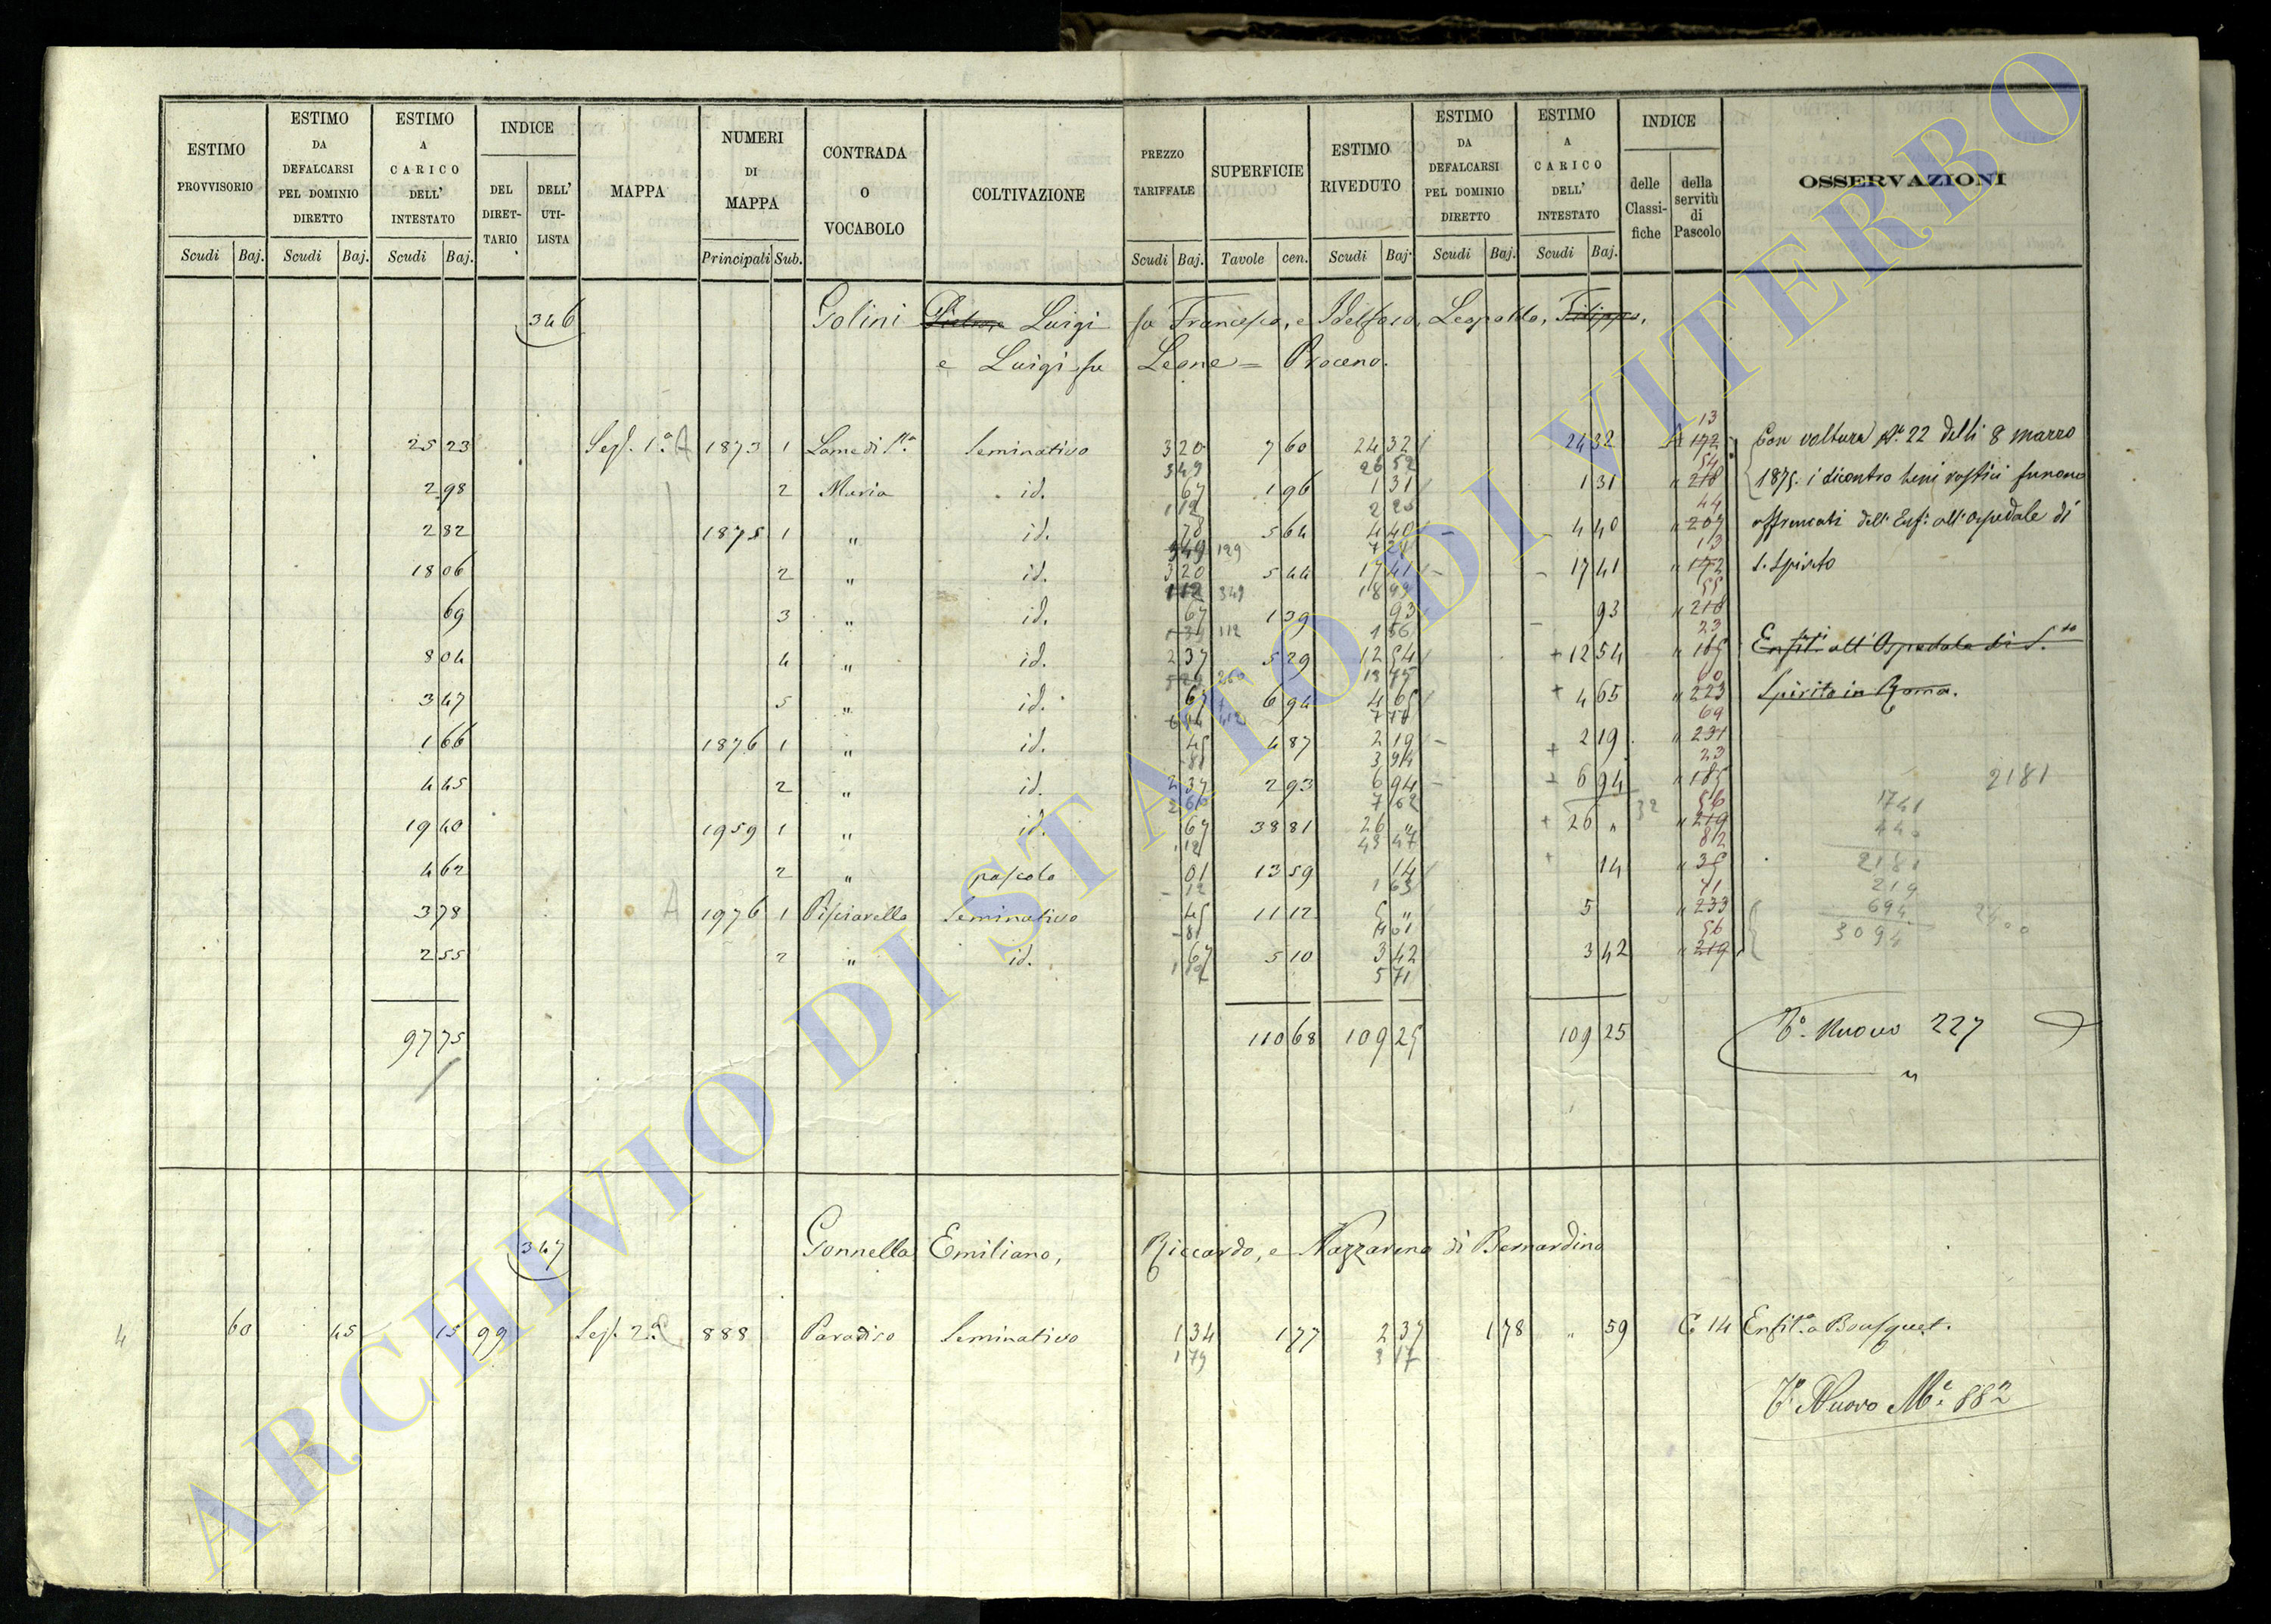 ESTIMO PROVVISORIO
ESTIMO DA DEFALCARSI PEL DOMINIO DIRETTO
ESTIMO A CARICO DELL' INTESTATO
INDICE
DEL DIRETTARIO
DELL' UTILISTA
MAPPA
NUMERI DI MAPPA
CONTRADA O VOCABOLO
COLTIVAZIONE
PREZZO TARIFFALE
SUPERFICIE
ESTIMO RIVEDUTO
ESTIMO DA DEFALCARSI PEL DOMINIO DIRETTO
ESTIMO A CARICO DELL' INTESTATO
INDICE
delle Classifiche
della servitù di Pascolo
OSSERVAZIONI
Scudi Baj. Scudi Baj. Scudi Baj. Principali Sub. Scudi Baj. Tavole cen. Scudi Baj. Scudi Baj. Scudi Baj.
346 Golini Luigi fu Francesco, e Idelfoso, Leopoldo, Filippo,
e Luigi fu Leone = Proceno.
25 23 Sez. 1.a A 1873 1 Lame di S.ta Seminativo 3 20 7 60 24 32 24 32 A 172 13 Con voltura N.° 22 delli 8 marzo
3 49 26 52
2 98 2 Maria id. 67 1 96 1 31 1 31 " 218 54 1875. i dicontro beni rustici furono
1 12 2 20
2 82 1875 1 " id. 78 5 64 4 40 4 40 " 209 44 affrancati dell' Enf. all' Ospedale di
3 49 129 7 28
18 06 2 " id. 3 20 5 44 17 41 17 41 " 172 13 S. Spirito
1 12 349 18 99
69 3 " id. 67 1 39 93 93 " 218 55
112 1 56
8 04 4 " id. 2 37 5 29 12 54 12 54 " 185 23 Enfit. all' Ospedale di S.to
260 13 75
3 47 5 " id. 67 6 94 4 65 4 65 " 223 60 Spirito in Roma.
1 66 1876 1 " id. 45 4 87 2 19 2 19 " 231 69
81 3 94
4 45 2 " id. 2 37 2 93 6 94 6 94 " 185 23 2181
2 60 7 62 1741
19 40 1959 1 " id. 67 38 81 26 " 26 " 32 " 219 56 440
1 12 43 47 2181
4 62 2 " pascolo 01 13 59 14 14 " 35 82 219
12 1 63
3 78 A 1976 1 Pisciarello Seminativo 45 11 12 5 " 5 " 233 71 694
81 9 01 3094
2 55 2 " id. 67 5 10 3 42 3 42 " 219 56
1 12 5 71
97 75 110 68 109 25 109 25 V.° Nuovo 227
347 Gonnella Emiliano, Riccardo, e Nazzareno di Bernardino
4 60 45 15 99 Sez. 2.a 888 Paradiso Seminativo 1 34 1 77 2 37 1 78 " 59 C 14 Enfit. a Bousquet.
1 79 3 17
V.° Nuovo N.° 882
ARCHIVIO DI STATO DI VITERBO